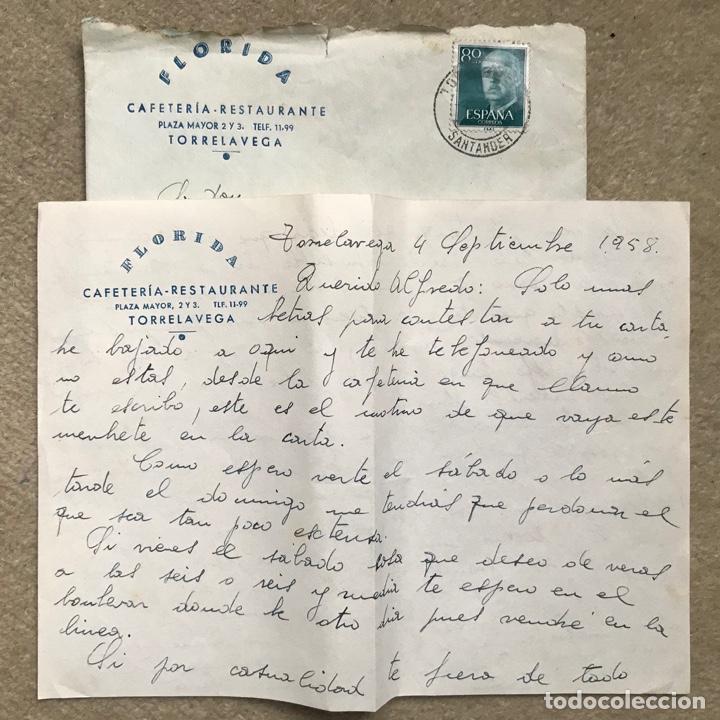 FLORIDA
CAFETERÍA-RESTAURANTE
PLAZA MAYOR 2 Y 3. TELF. 11-99
TORRELAVEGA
80
ESPAÑA
CORREOS
SANTANDER
FLORIDA
CAFETERÍA-RESTAURANTE
PLAZA MAYOR, 2 Y 3. TLF. 11-99
TORRELAVEGA
Torrelavega 4 Septiembre 1.958.
Querido Alfredo: Solo unas
letras para contestar a tu carta,
he bajado a aqui y te he telefoneado y como
no estas, desde la cafeteria en que llamo
te escribo, este es el motivo de que vaya este
menbete en la carta.
Como espero verte el sábado o lo más
tarde el domingo me tendrás que perdonar el
que sea tan poco esctensa.
Si vienes el sábado cosa que deseo de veras
a las seis o seis y media te espero en el
boulevar donde le otro dia pues vendré en la
linea.
Si por casualidad te fuera de todo
todocoleccion.net